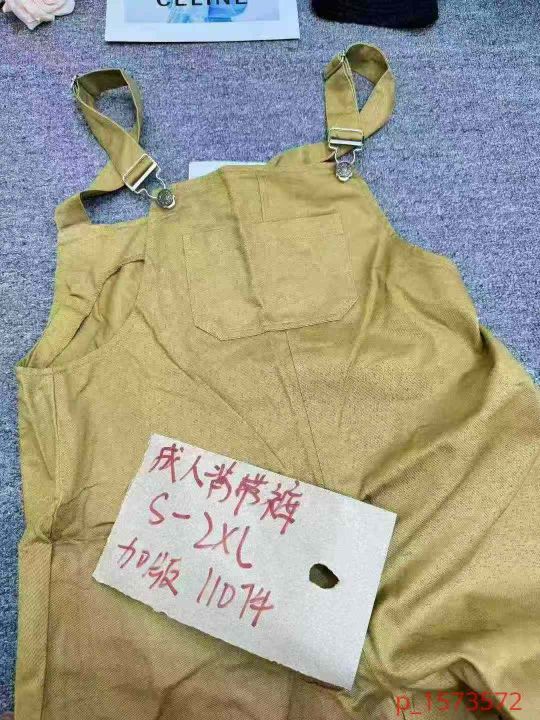 CELINE
成人背带裤
S-2XL
加版 1107件
p_1573572